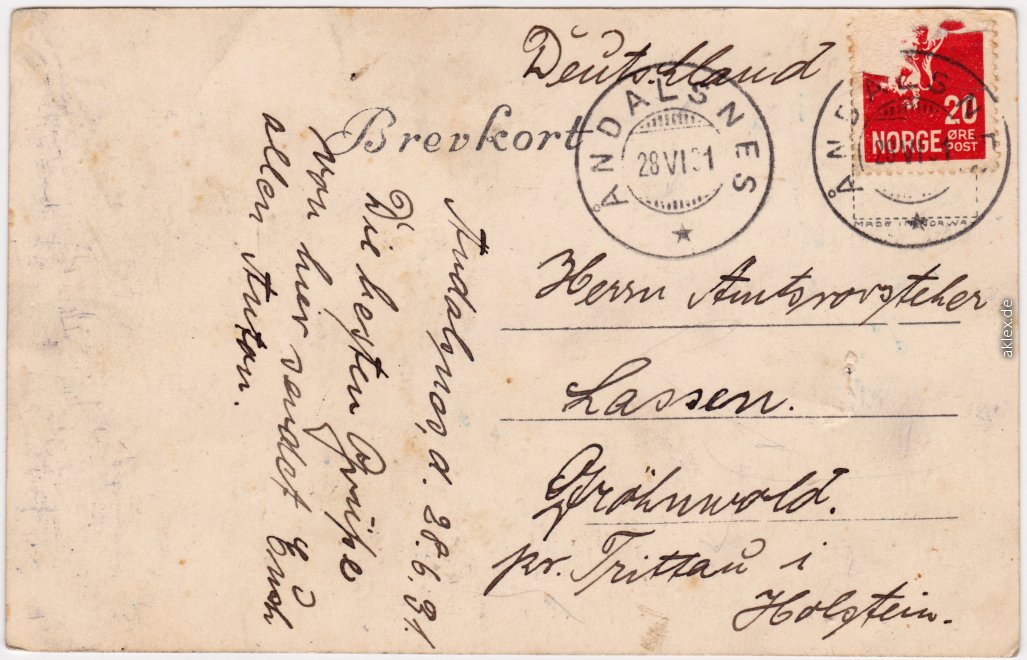 Deutschland
Brevkort
ÅNDALSNES
28 VI 31
ÅNDALSNES
28 VI 31
20
NORGE ØRE
POST
MADE IN NORWAY
Herrn Amtsvorsteher
Lassen.
Gröhnwold.
pr. Trittau i
Holstein.
Åndalsnes, d. 28.6.31.
Die besten Grüße
von hier sendet Euch
allen Anton.
aklex.de